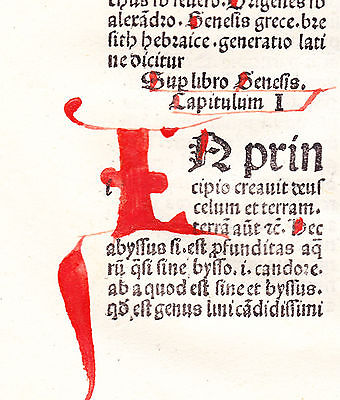 thus io severo. Origenes io
alexãdro. Genesis grece. bre
sith hebraice. generatio lati
ne dicitur
Sup libro Genesis.
Capitulum I
IN prin
cipio creavit deus
celum et terram.
terrã aũt ⁊c. Hec
abyssus si. est ꝓfunditas aq̃
rũ q̃si sine bysso. i. candore.
ab a quod est sine et byssus.
qđ est genus lini cãdidissimi